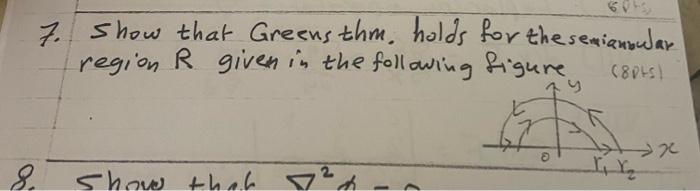 6 pts)
7. Show that Greens thm. holds for the semiannular
region R given in the following figure (8pts)
y
x
0
r1 r2
8. Show that ∇²